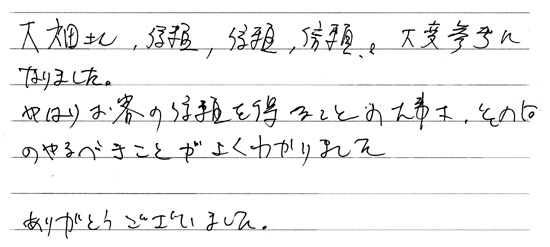 信頼, 信頼, 信頼、と 大変参考に
なりました。
やはりお客の信頼を得ることの大事さ、その為
のやるべきことがよくわかりました
ありがとうございました。